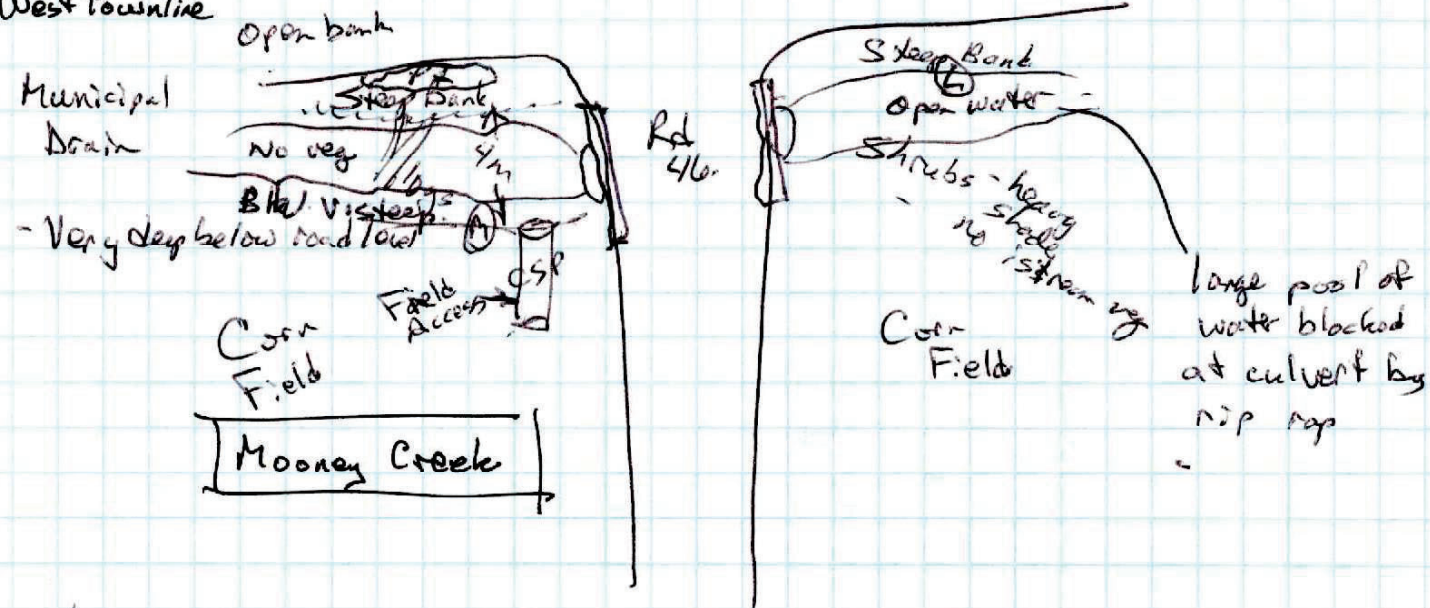 West Townline
Open bank
Municipal
Drain
Steep Bank
No veg
4m
logs
V. steep
- Very deep below road level
CSP
Field
Access
Corn
Field
Mooney Creek
Rd
46.
Steep Bank
L
Open water
Shrubs - heavy
shade
no
Corn
Field
large pool of
water blocked
at culvert by
rip rap